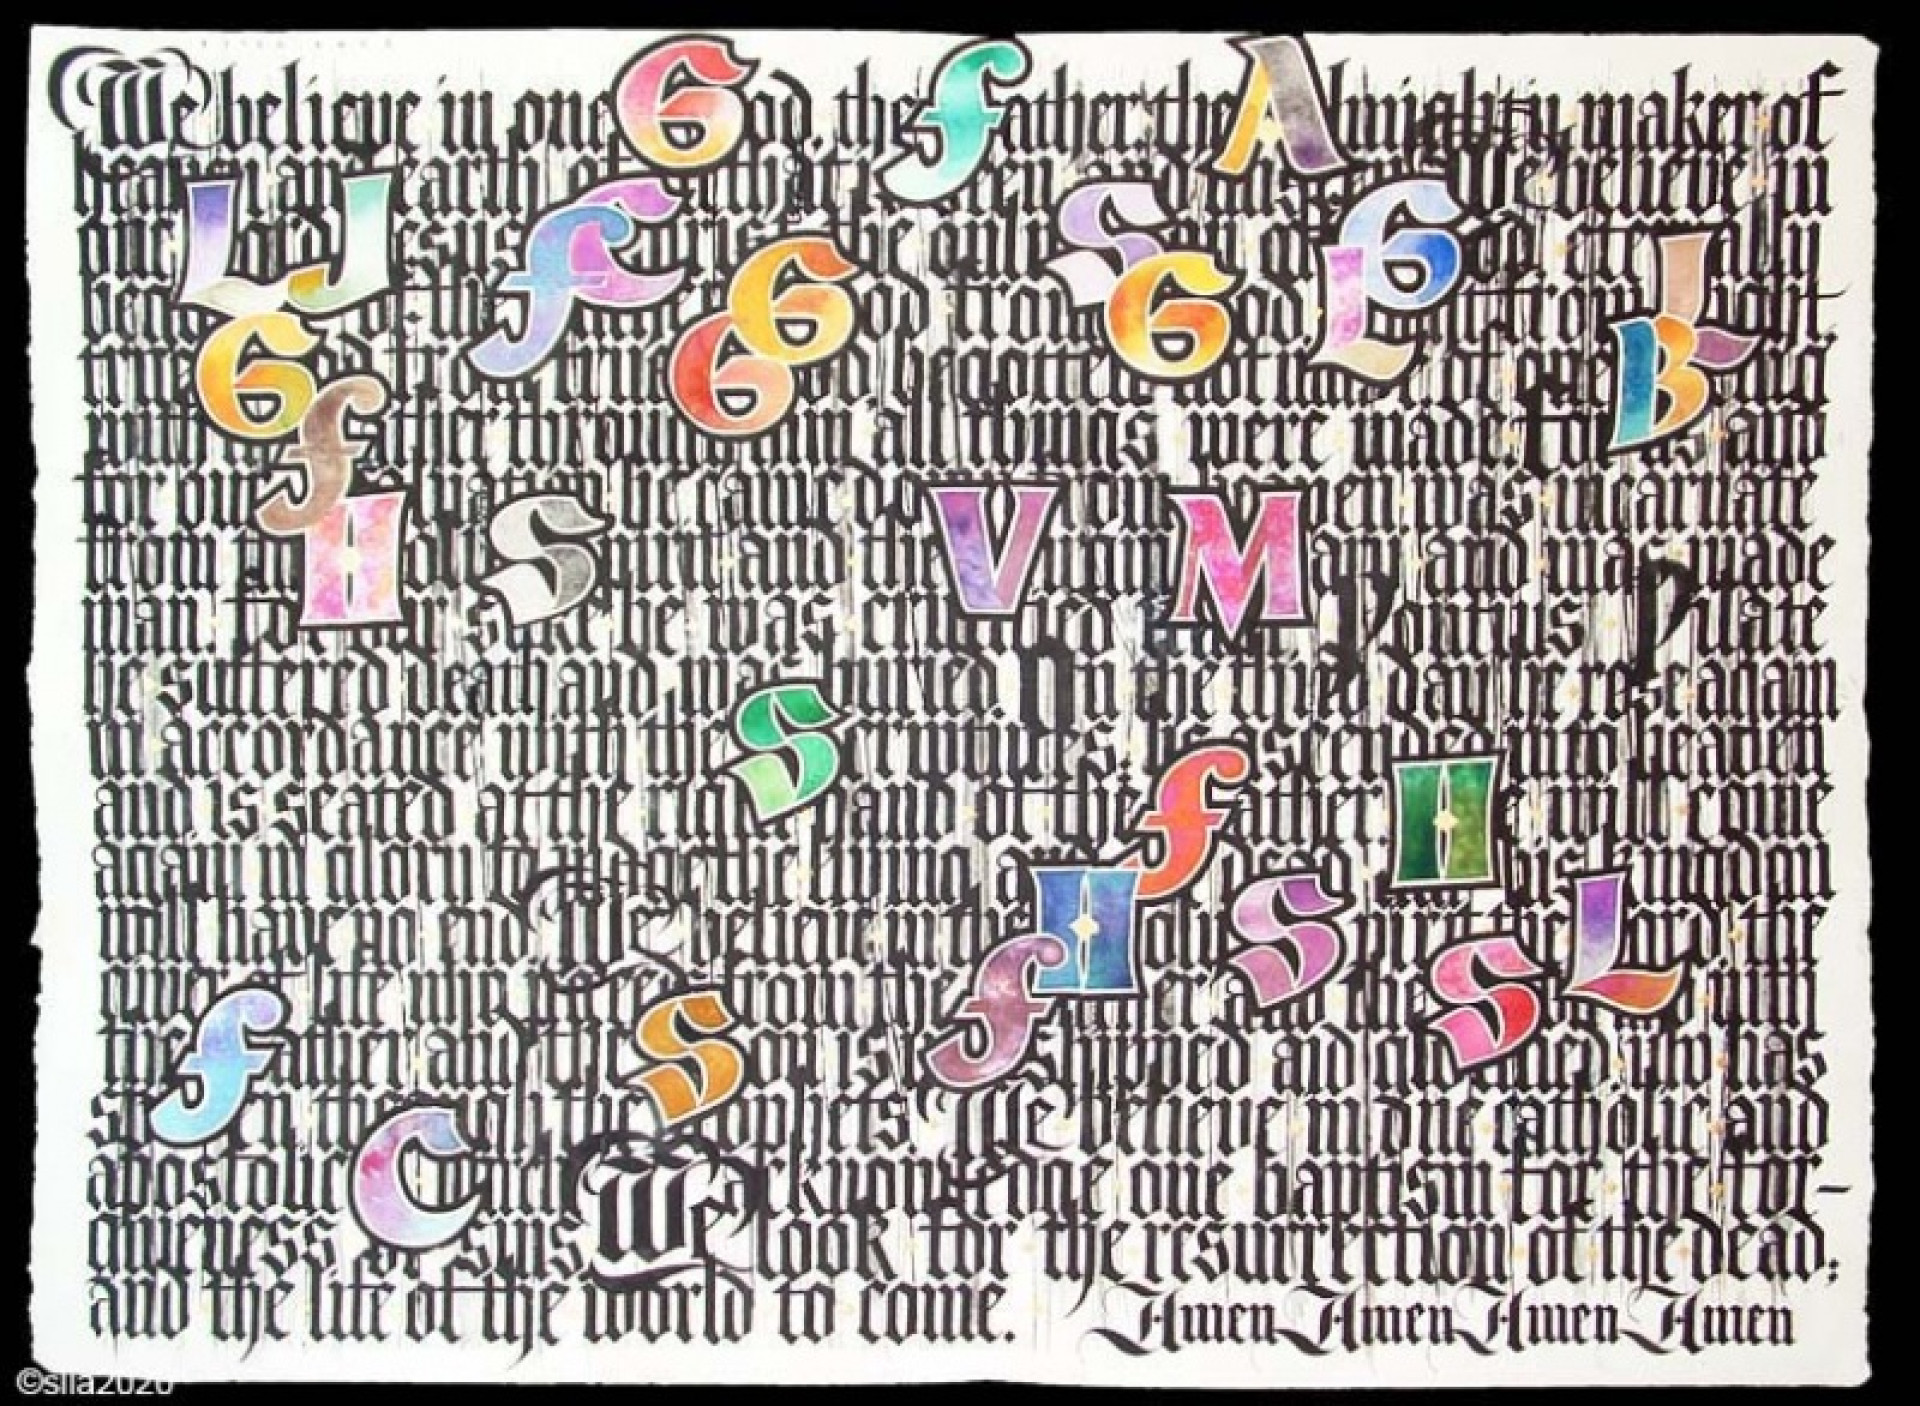 We believe in one God, the father, the Almighty maker of
heaven and earth, of all that is seen and unseen. We believe in
one Lord Jesus Christ, the only Son of God, eternally
begotten of the father, God from God, Light from Light,
true God from true God, begotten not made, of one Being
with the father through him all things were made for us and
for our salvation he came down from heaven was incarnate
from the Holy Spirit and the Virgin Mary and was made
man. For our sake he was crucified under Pontius Pilate
he suffered death and was buried. On the third day he rose again
in accordance with the Scriptures, he ascended into heaven
and is seated at the right hand of the father. He will come
again in glory to judge the living and the dead, his kingdom
will have no end We believe in the Holy Spirit the Lord, the
giver of life who proceeds from the father and the Son with
the father and the Son is worshipped and glorified who has
spoken through the prophets. We believe in one catholic and
apostolic Church We acknowledge one baptism for the for-
giveness of sins We look for the resurrection of the dead:
and the life of the world to come. Amen Amen Amen Amen
©slla2020